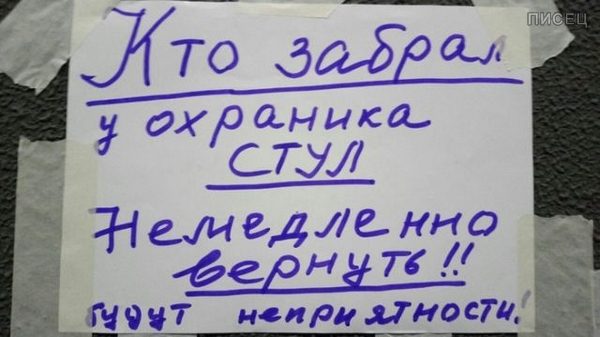 ПИСЕЦ
Кто забрал
у охраника
СТУЛ
Немедленно
вернуть!!
будут неприятности!